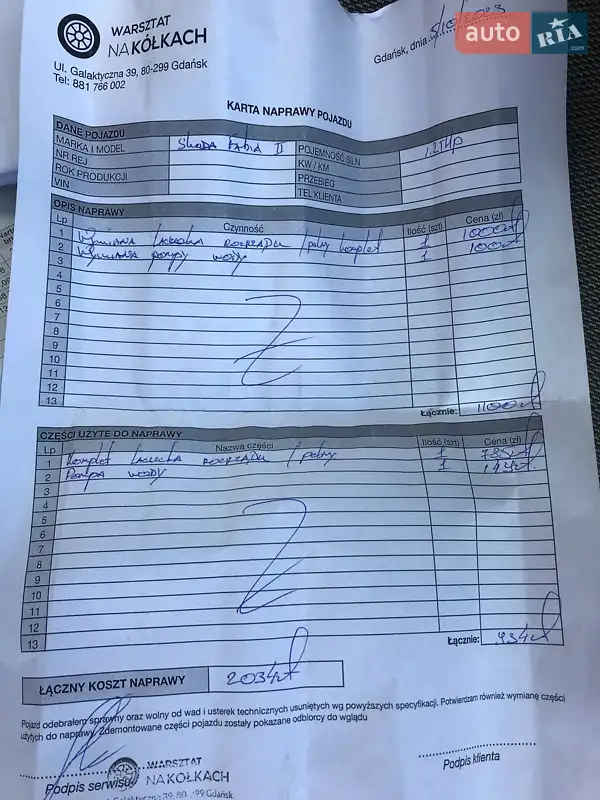 WARSZTAT
NA KÓŁKACH
Ul. Galaktyczna 39, 80-299 Gdańsk
Tel: 881 766 002
Gdańsk, dnia 5/10/2023
auto RIA .com
KARTA NAPRAWY POJAZDU
DANE POJAZDU
MARKA I MODEL Skoda Fabia II POJEMNOŚĆ SILN 1.2THP
NR REJ KW / KM
ROK PRODUKCJI PRZEBIEG
VIN TEL KLIENTA
OPIS NAPRAWY
Lp Czynność Ilość (szt) Cena (zł)
1 Wymiana łańcucha rozrządu / pełny komplet 1 1000zł
2 Wymiana pompy wody 1 100zł
3
4
5
6
7
8
9
10
11
12
13
Łącznie: 1100zł
CZĘŚCI UŻYTE DO NAPRAWY
Lp Nazwa części Ilość (szt) Cena (zł)
1 Komplet łańcucha rozrządu / pełny 1
2 Pompa wody 1
3
4
5
6
7
8
9
10
11
12
13
Łącznie: 934zł
ŁĄCZNY KOSZT NAPRAWY 2034zł
Pojazd odebrałem sprawny oraz wolny od wad i usterek technicznych usuniętych wg powyższych specyfikacji. Potwierdzam również wymianę części
użytych do naprawy. Zdemontowane części pojazdu zostały pokazane odbiorcy do wglądu
WARSZTAT
NA KÓŁKACH
Podpis serwisu
Podpis klienta
Galaktyczna 39, 80-299 Gdańsk